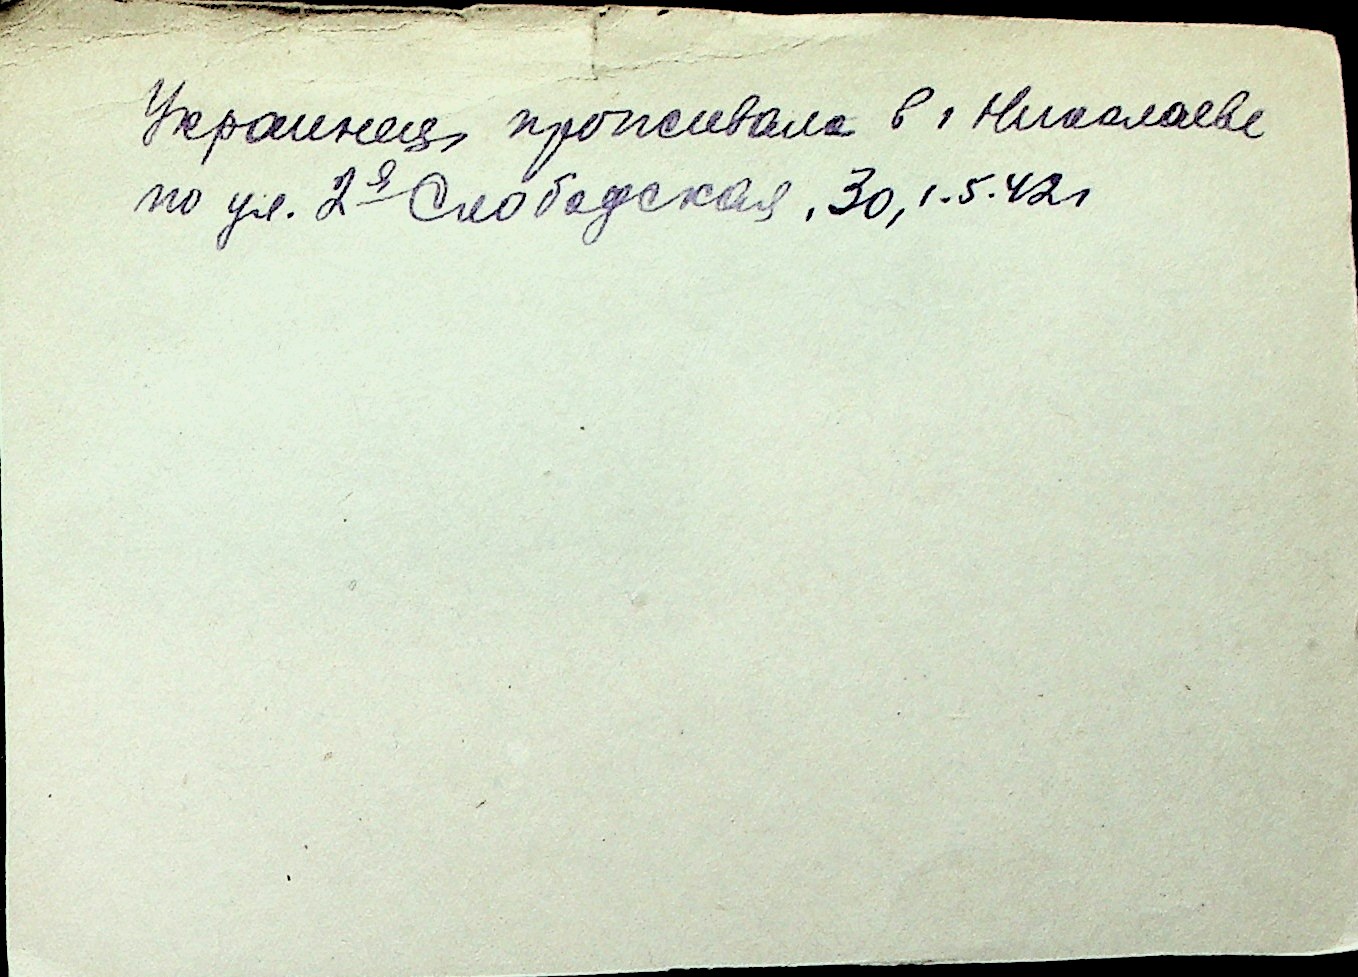 Украинец, проживала в г Николаеве
по ул. 2я Слободская, 30, 1.5.42г